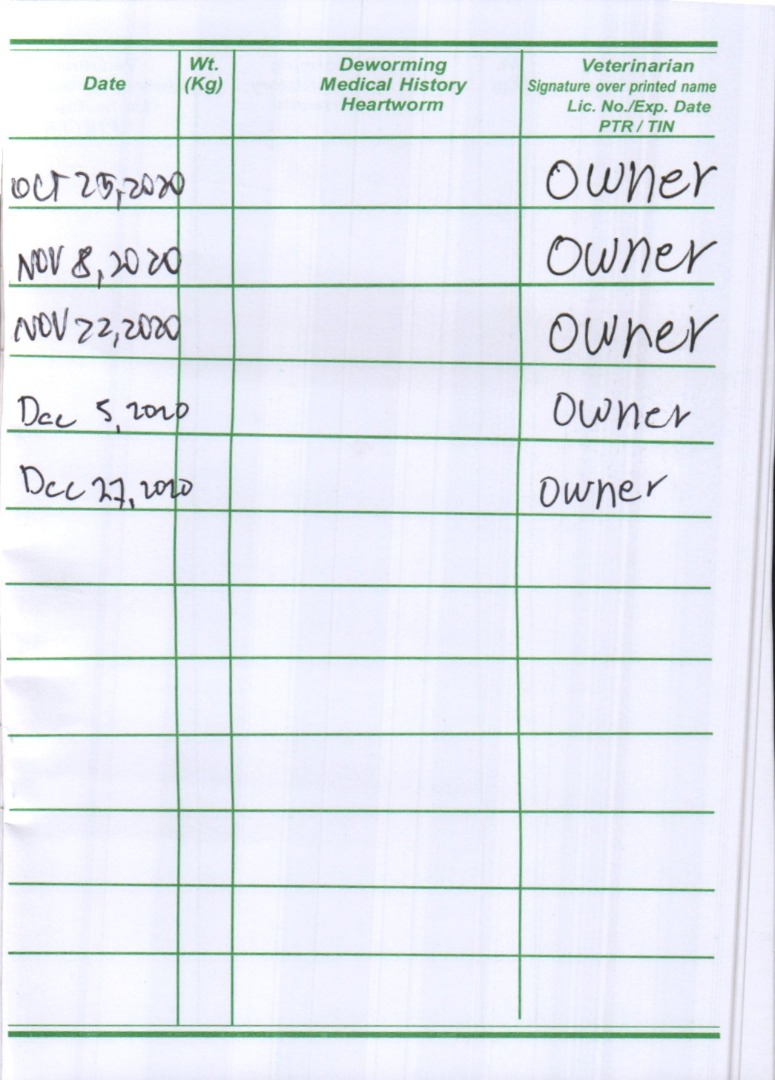 Date Wt. (Kg) Deworming Medical History Heartworm Veterinarian Signature over printed name Lic. No./Exp. Date PTR / TIN
OCT 25, 2020 Owner
NOV 8, 2020 Owner
NOV 22, 2020 Owner
Dec 5, 2020 Owner
Dec 27, 2020 Owner